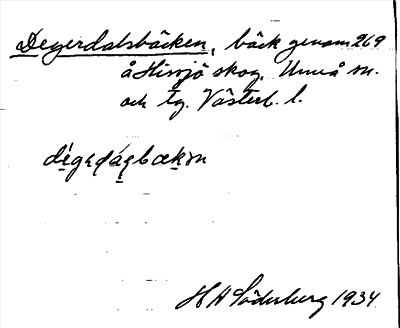 Degerdalsbäcken, bäck genom 269
å Hissjö skog, Umeå sn.
och tg. Västerb. l.
H A Söderberg 1934